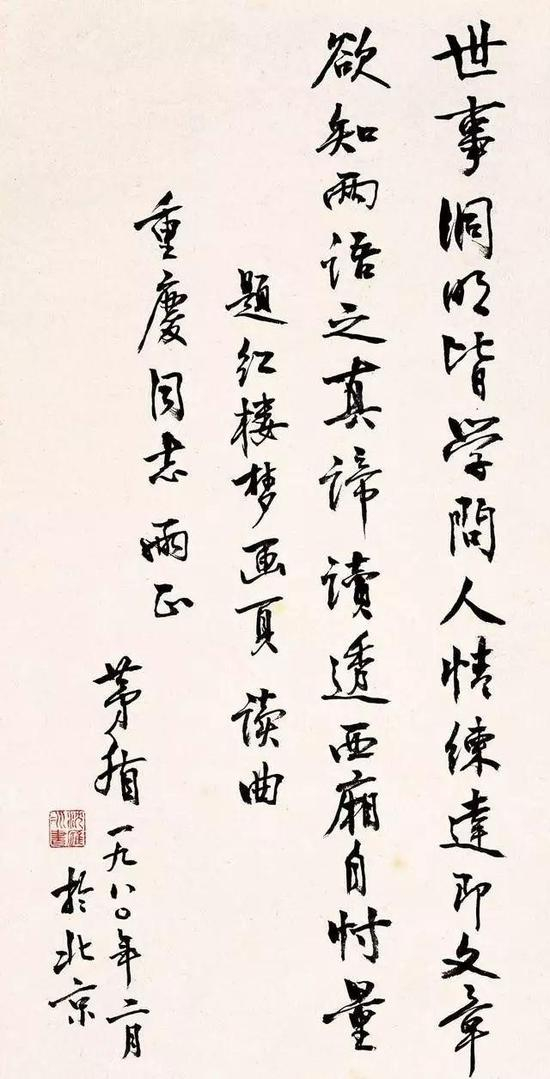 世事洞明皆学問人情練達即文章
欲知兩语之真谛讀透西廂自忖量
題红楼梦画頁 读曲
重慶同志 正
茅盾 一九八〇年二月
於北京
沈雁冰書